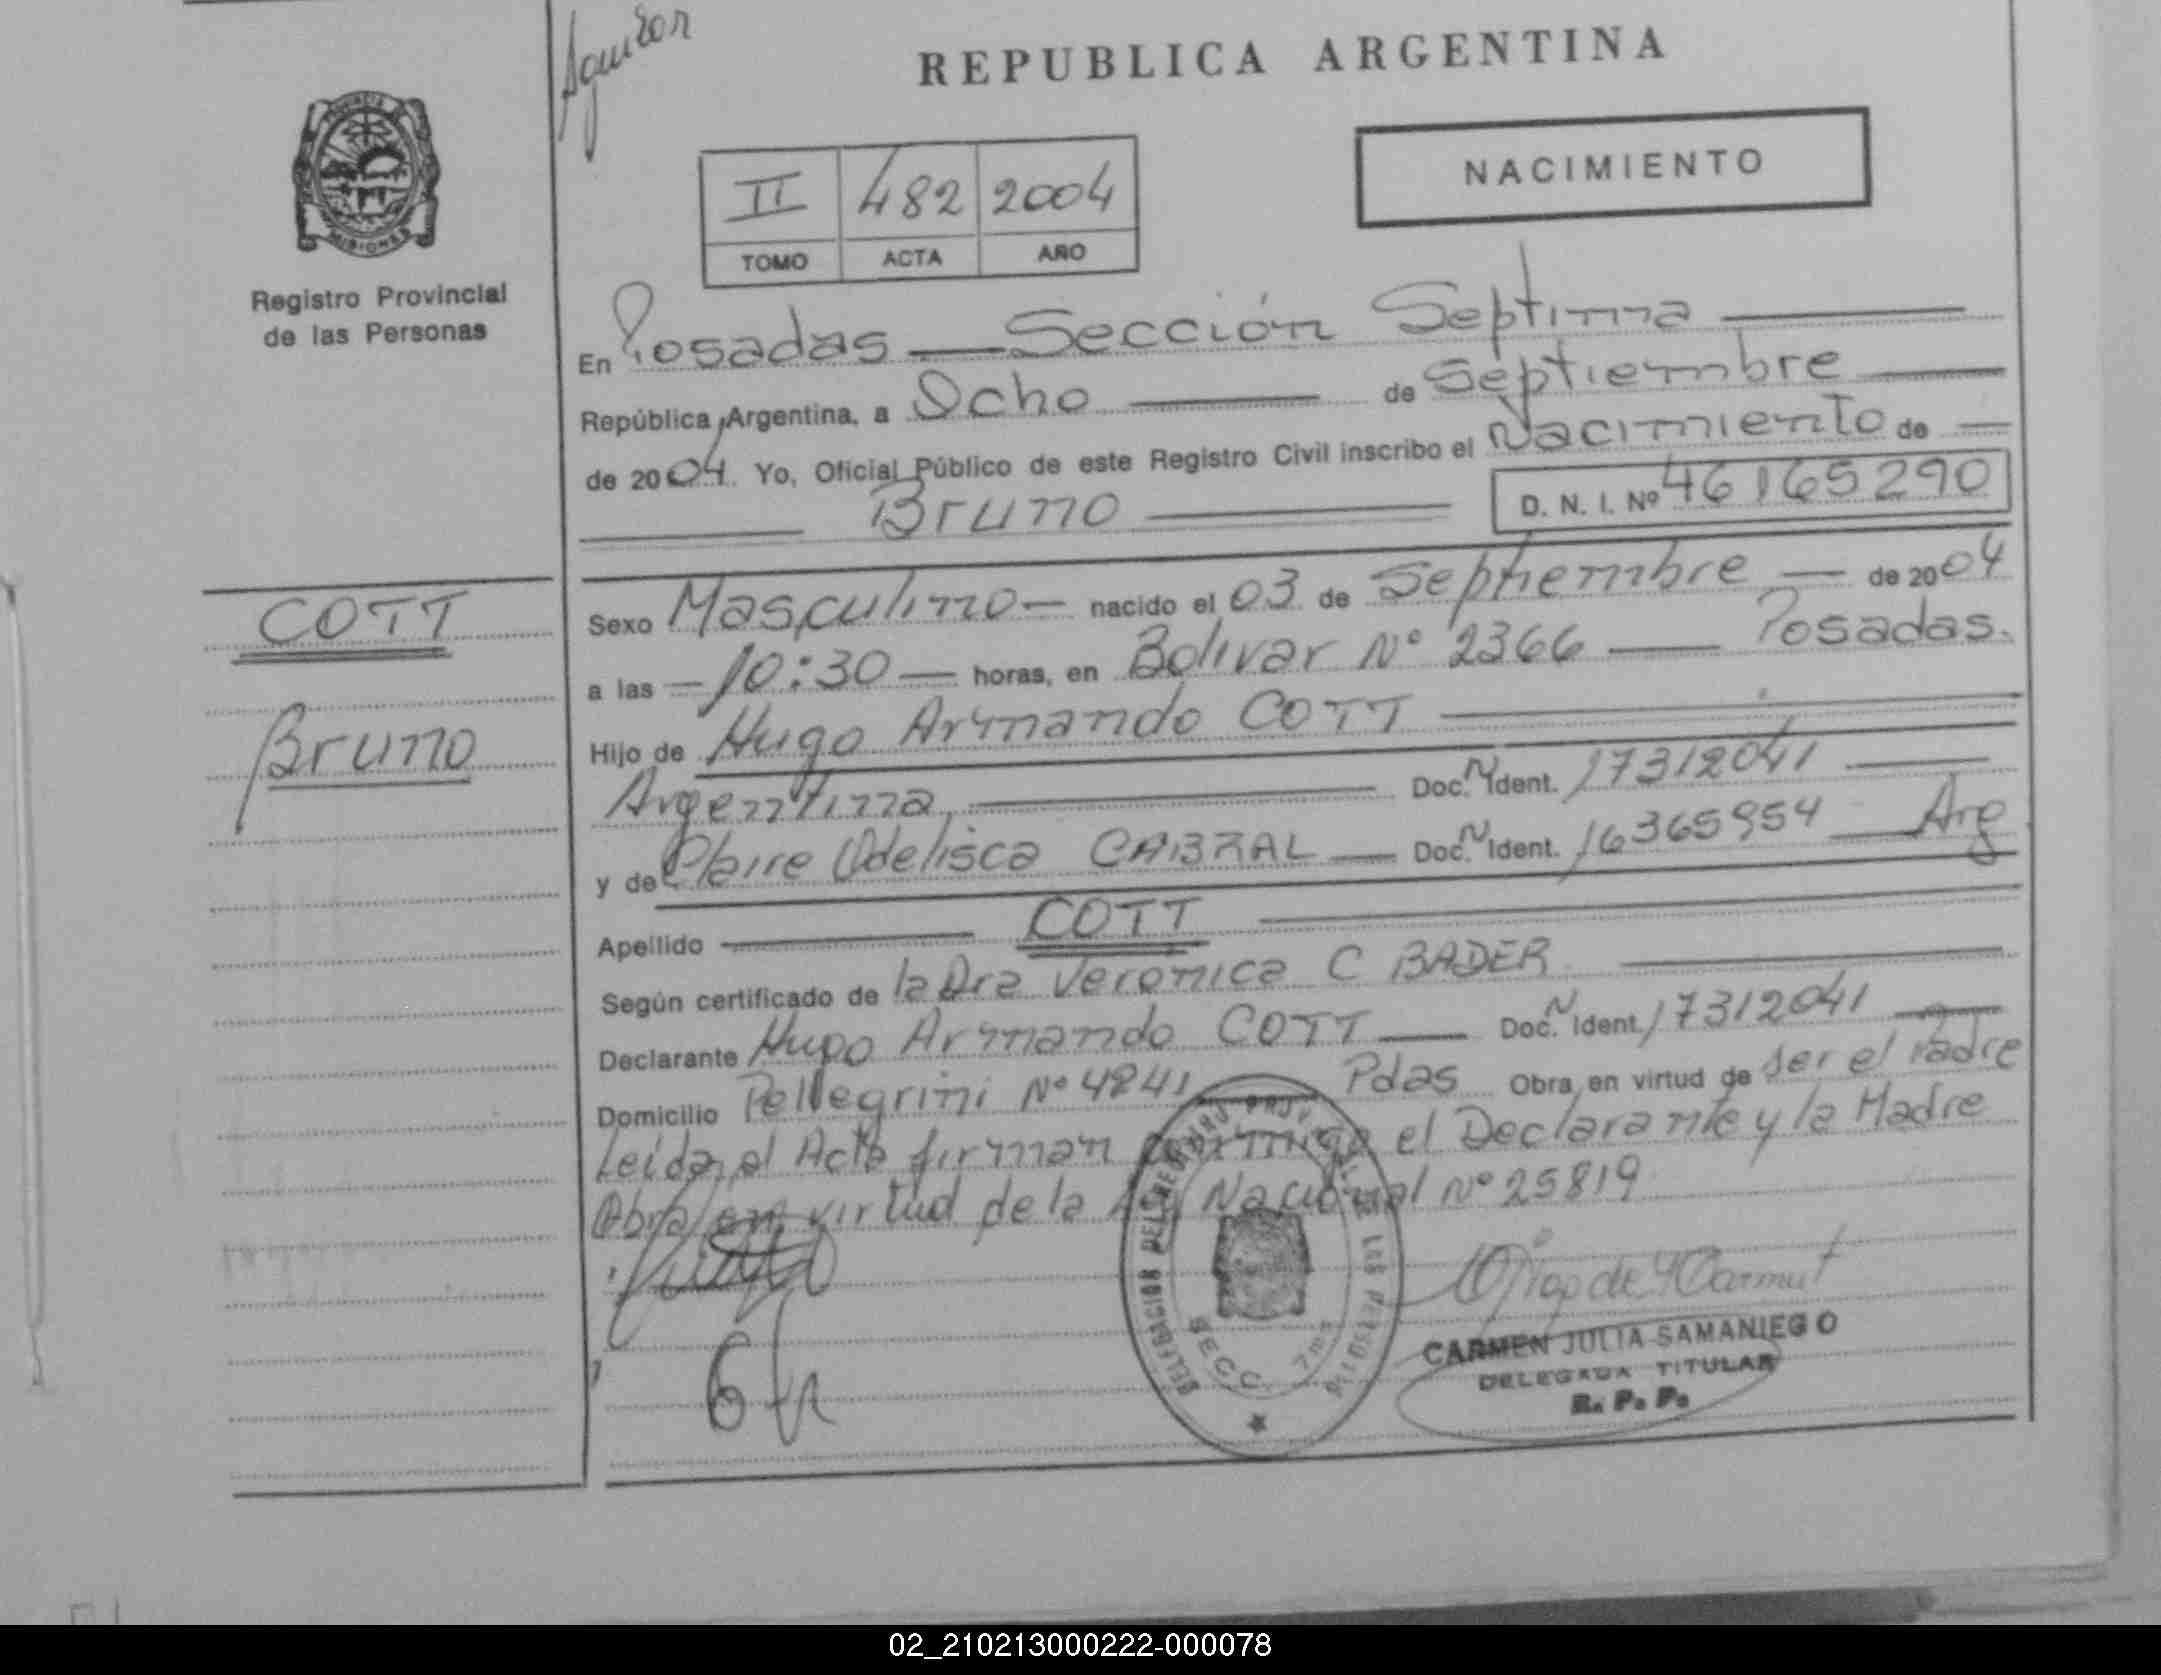 Aguilar
REPUBLICA ARGENTINA
NACIMIENTO
II 482 2004
TOMO ACTA AÑO
MISIONES
Registro Provincial
de las Personas
En Posadas — Sección Septima
República Argentina, a Ocho de Septiembre
de 2004. Yo, Oficial Público de este Registro Civil inscribo el Nacimiento de
Bruno D. N. I. Nº 46165290
COTT
Bruno
Sexo Masculino — nacido el 03 de Septiembre — de 2004
a las — 10:30 — horas, en Bolivar Nº 2366 — Posadas.
Hijo de Hugo Armando COTT
Argentina, Doc. N Ident. 17312041
y de Claire Odelisca CABRAL — Doc. N Ident. 16365954 — Arg
Apellido COTT
Según certificado de la Dra Veronica C BADER
Declarante Hugo Armando COTT — Doc. N Ident. 17312041
Domicilio Pellegrini Nº 4841 Pdas Obra en virtud de ser el Padre
Leida el Acta firman conmigo el Declarante y la Madre
Obra en virtud de la Ley Nacional Nº 25819
DELEGACION DEL REGISTRO PROVINCIAL DE LAS PERSONAS
SECC. 7ma
CARMEN JULIA SAMANIEGO
DELEGADA TITULAR
R. P. P.
02_210213000222-000078